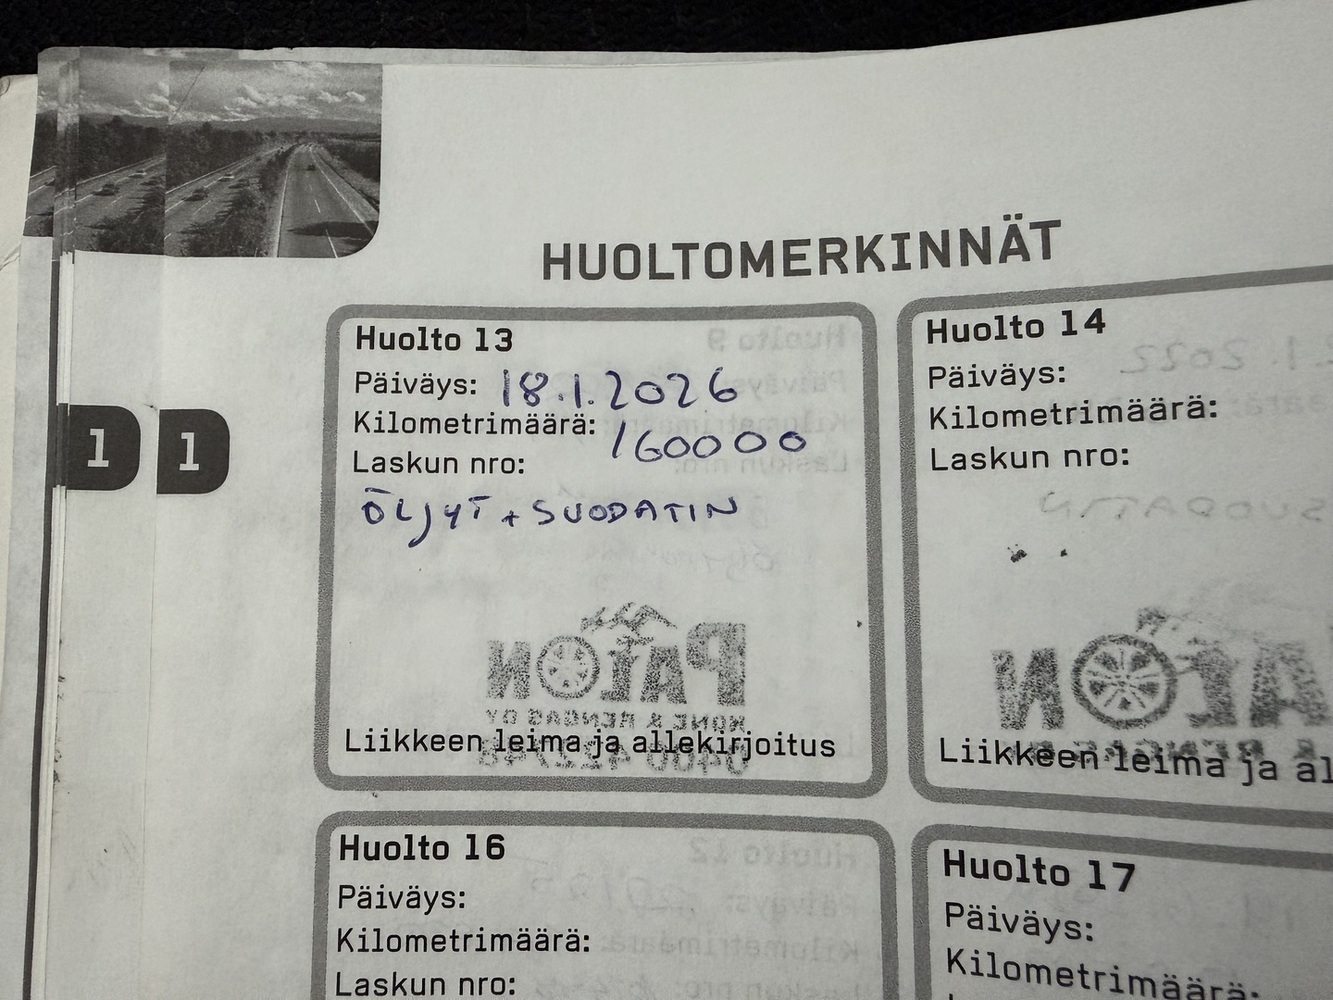 HUOLTOMERKINNÄT
1
1
Huolto 13
Päiväys: 18.1.2026
Kilometrimäärä: 160000
Laskun nro:
ÖLJYT + SUODATIN
Liikkeen leima ja allekirjoitus
Huolto 14
Päiväys:
Kilometrimäärä:
Laskun nro:
Liikkeen leima ja al
Huolto 16
Päiväys:
Kilometrimäärä:
Laskun nro:
Huolto 17
Päiväys:
Kilometrimäärä: